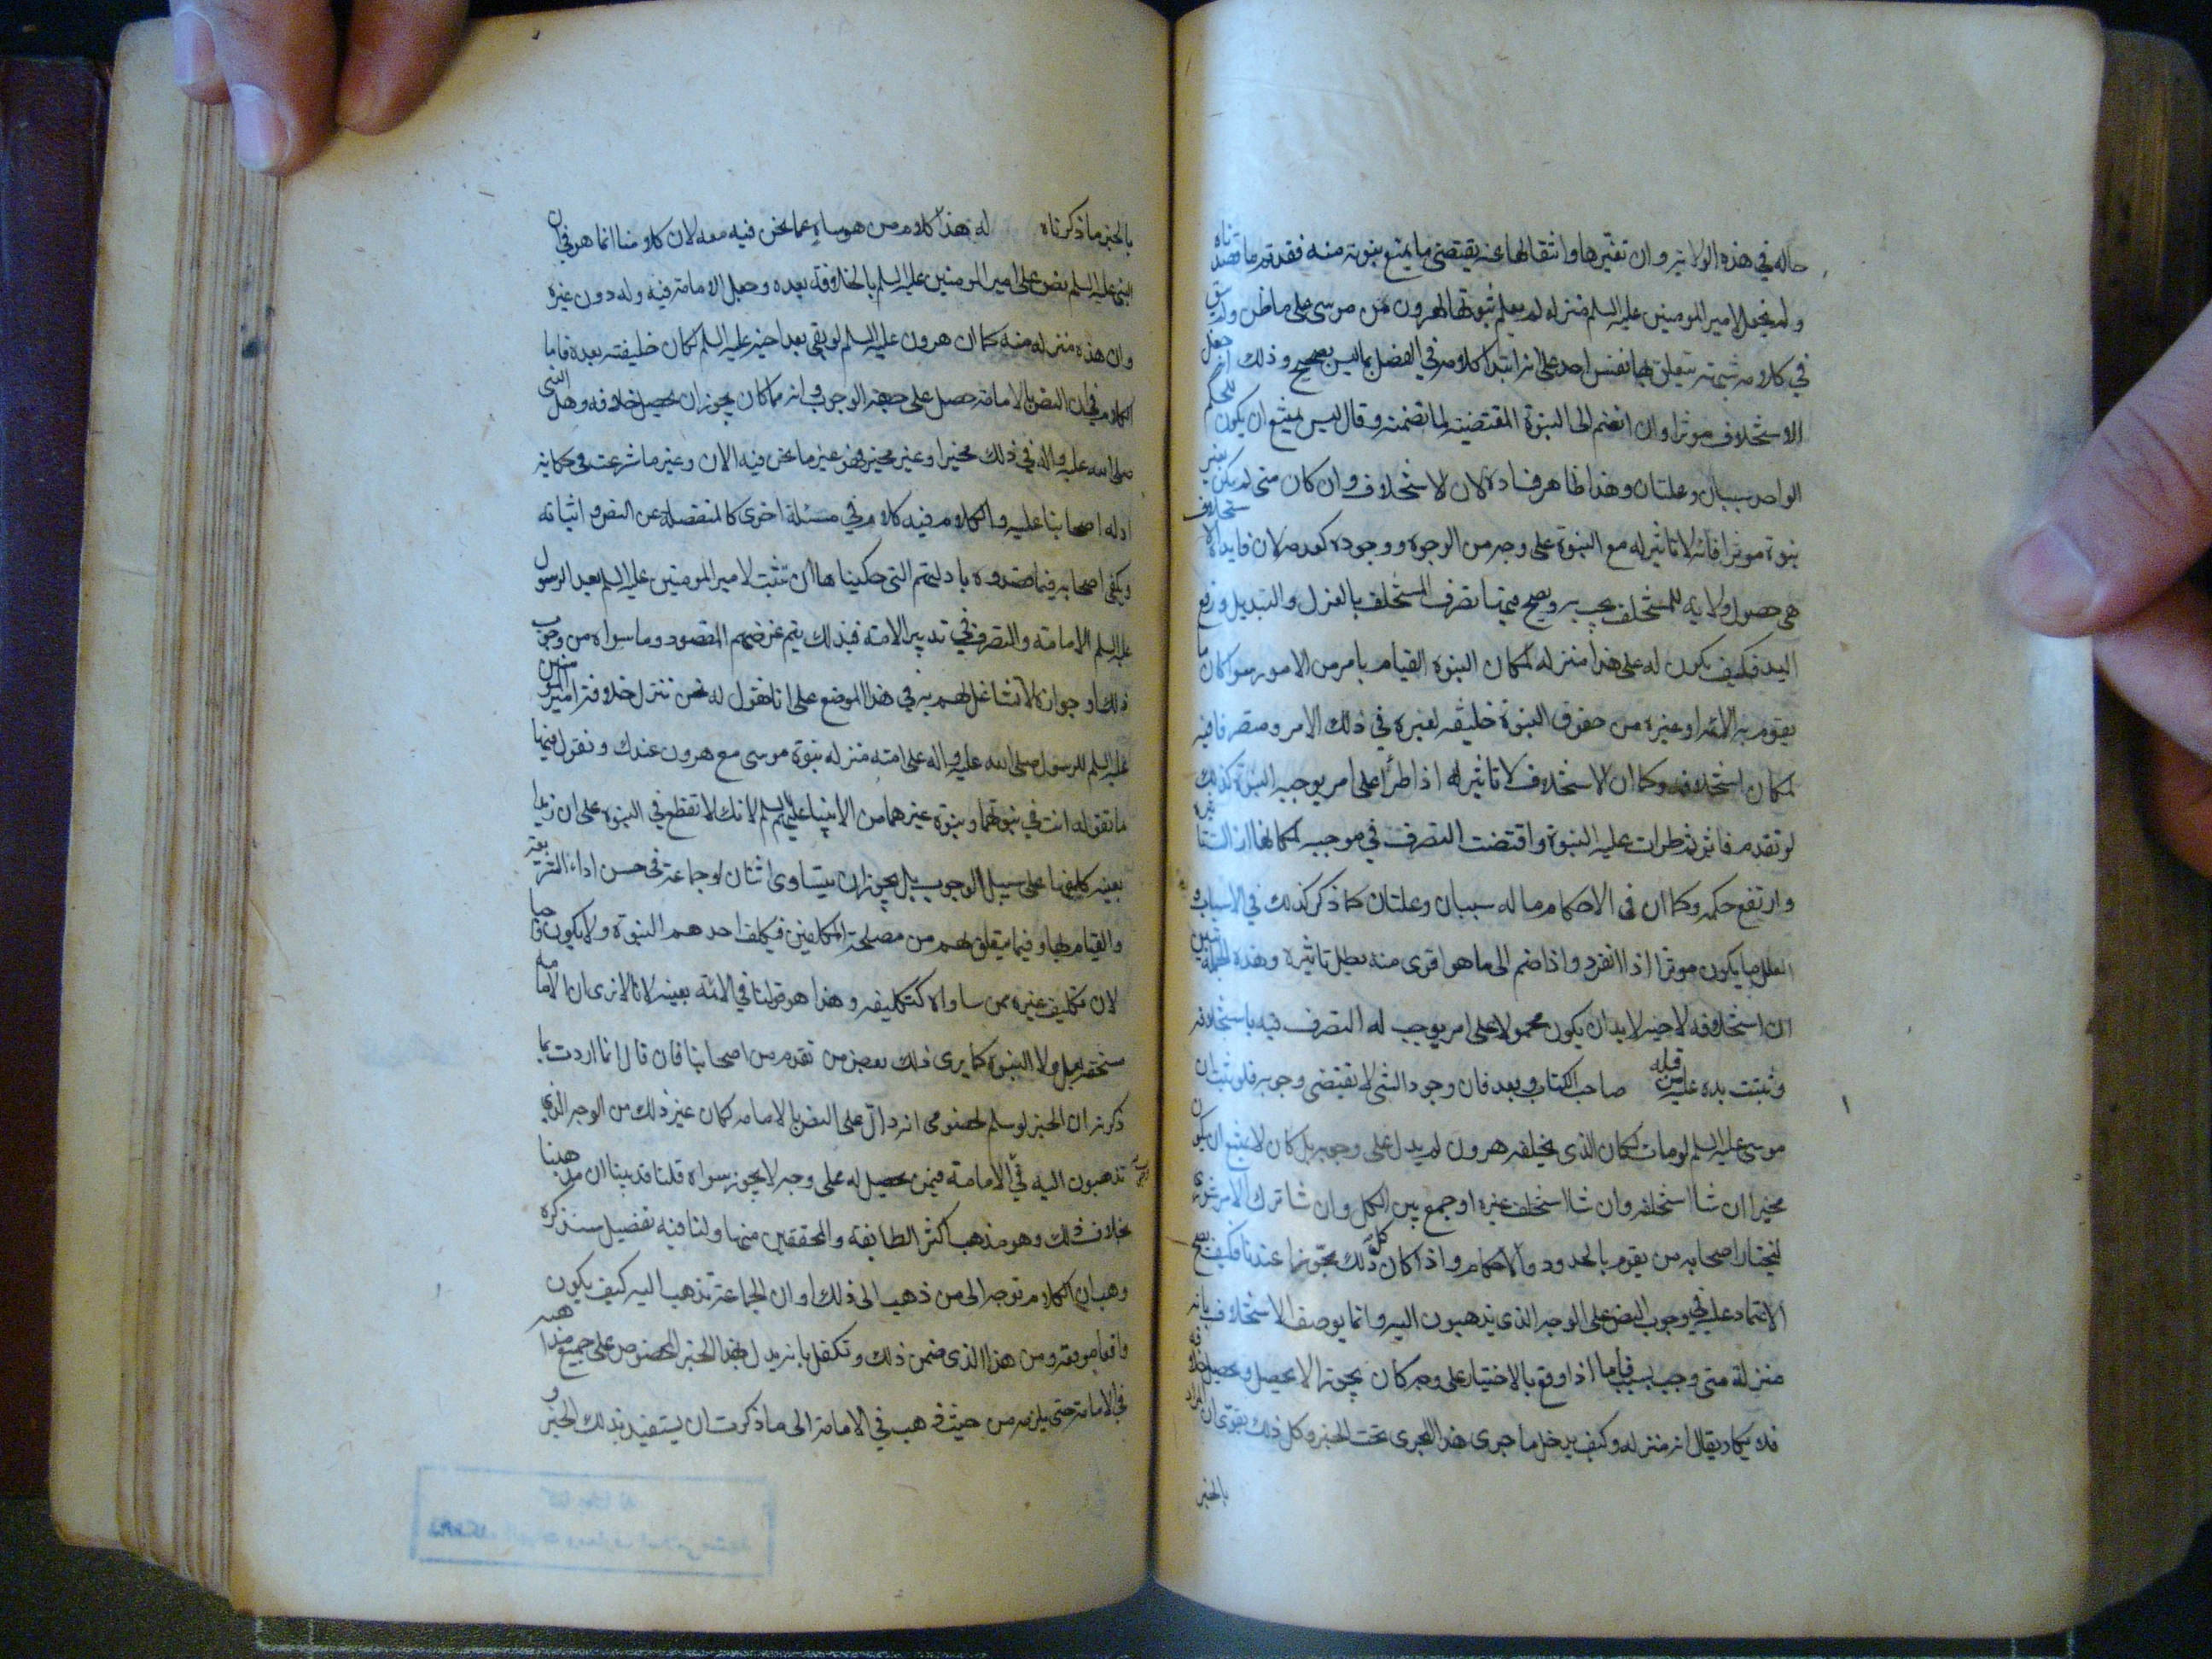 حاله في هذه الولاية وان تغيرها وانتقالها عنه يقتضي ما يمنع نبوته منه فقد قدم ما قصدناه
ولم يجعل لامير المومنين عليه السلم منزله لم يعلم ثبوتها لهرون من موسى على ما ظن ولم يبق
في كلامه شبهة تتعلق بها نفس احد على انه ابتدا كلامه في الفصل بما ليس بصحيح وذلك انه جعل
الاستخلاف موثرا وان انضم الى النبوة المقتضية لما تضمنته وقال ليس يمتنع ان يكون للحكم
الواحد سببان وعلتان وهذا ظاهر فساده لان الاستخلاف وان كان متى لم يكن بغير
نبوة موثرا فانه لا تاثير له مع النبوة على وجه من الوجوه ووجوده كعدمه لان فايدة الاستخلاف
هي حصول ولاية للمستخلف يجب به ويصح فيها تصرف المستخلف بالعزل والتبديل ورفع
اليد فكيف يكون له على هذا منزله لمكان النبوه القيام بامر من الامور سوا كان ما
يقوم به الائمه او غيره من حقوق النبوة خليفه لغيره في ذلك الامر ومتصرفا فيه
لمكان استخلافه وكما ان الاستخلاف لا تاثير له اذا طرأ على امر يوجبه النبوة كذلك
لو تقدم فاثر ثم طرات عليه النبوة واقتضت التصرف في موجبه لمكانها ازال تاثيره
وارتفع حكمه وكما ان في الاحكام ما له سببان وعلتان كما ذكر كذلك في الاسباب و
العلل ما يكون موثرا اذا انفرد واذا ضم الى ما هو اقوى منه بطل تاثيره وبهذه الجمله تبين
ان استخلافه لاخيه لا بد ان يكون محمولا على امر يوجب له التصرف فيه باستخلافه
وثبتت يده عليه من قبله صاحب الكتاب وبعد فان وجود الشي لا يقتضي وجوبه فلو ثبت ان
موسى عليه السلم لو مات لكان الذي يخلفه هرون لم يدل على وجوبه بل كان لا يمتنع ان يكون
مخيرا ان شا استخلفه وان شا استخلف غيره او جمع بين الكل وان شا ترك الامر شورى
ليختار اصحابه من يقوم بالحدود والاحكام واذا كان كل ذلك مجوزا عندنا فكيف يصح
الاعتماد عليه في وجوب النص على الوجه الذي يذهبون اليه وانما يوصف الاستخلاف بانه
منزلة متى وجب بسبب فاما اذا وقع بالاختيار على وجه كان يجوز الا يحصل ويحصل خلافه
فلا يكاد يقال انه منزله وكيف يدخل ما جرى هذا المجرى تحت الخبر وكل ذلك يقوى ان المراد
بالخبر
بالخبر ما ذكرناه له هذا كلام من هو ساه عما نحن فيه معه لان كلامنا انما هو في ان
النبى عليه السلم نص على امير المومنين عليه السلم بالخلافة بعده وجعل الامامة فيه وله دون غيره
وان هذه منزله منه كما ان هرون عليه السلم لو بقي بعد اخيه عليه السلم لكان خليفته بعده فاما
الكلام في ان النص بالامامة حصل على جهة الوجوب او انه مما كان يجوز ان يحصل خلافه وهل النبى
صلى الله عليه واله في ذلك مخيرا وغير مخير فهو غير ما نحن فيه الان وغير ما شرعت في حكاية
ادله اصحابنا عليه والكلام فيه كلام في مسئلة اخرى كالمنفصلة عن النص و اثباته
ويكفى اصحابه فيما قصدوه بادلتهم التي حكيناها ان تثبت لامير المومنين عليه السلم بعد الرسول
عليه السلم الامامة والتصرف في تدبير الامة فبذلك يتم غرضهم المقصود وما سواه من وجوب
ذلك او جوازه لا تشاغل لهم به في هذا الموضع على انا نقول له نحن ننزل خلافة امير المومنين
عليه السلم للرسول صلى الله عليه واله على امته منزله نبوة موسى مع هرون عندك ونقول فيها
ما تقوله انت في نبوتهما ونبوة غيرهما من الانبيا عليهم السلم لانك لا تقطع في النبوة على ان زيدا
بعينه كلفها على سبيل الوجوب بل يجوز ان يتساوى اثنان او جماعة في حسن اداء الشريعة
والقيام بها وفيما يتعلق بهم من مصلحة المكلفين فيكلف احدهم النبوة ولا يكون واجبا
لان تكليف غيره ممن ساواه كتكليفه وهذا هو قولنا في الائمة بعينه لانا لا نرى ان الامامة
مستحقه بعمل ولا النبوة كما يرى ذلك بعض من تقدم من اصحابنا فان قال انما اردت بما
ذكرته ان الخبر لو سلم لخصومى انه دال على النص بالامامه لكان غير ذلك من الوجه الذي
تذهبون اليه في الامامة فيمن يحصل له على وجه لا يجوز سواه قلنا قد بينا ان مذهبنا
بخلاف ذلك وهو مذهب اكثر الطايفة والمحققين منها ولنا فيه تفصيل سنذكره
وهب ان الكلام توجه الى من ذهب الى ذلك او ان الجماعة تذهب اليه كيف يكون
واقعا موقعه ومن هذا الذي ضمن ذلك وتكفل بانه يدل بهذا الخبر المخصوص على جميع مذاهبه
في الامامة حتى يلزمه من حيث ذهب في الامامة الى ما ذكرت ان يستفيد بذلك الخبر و